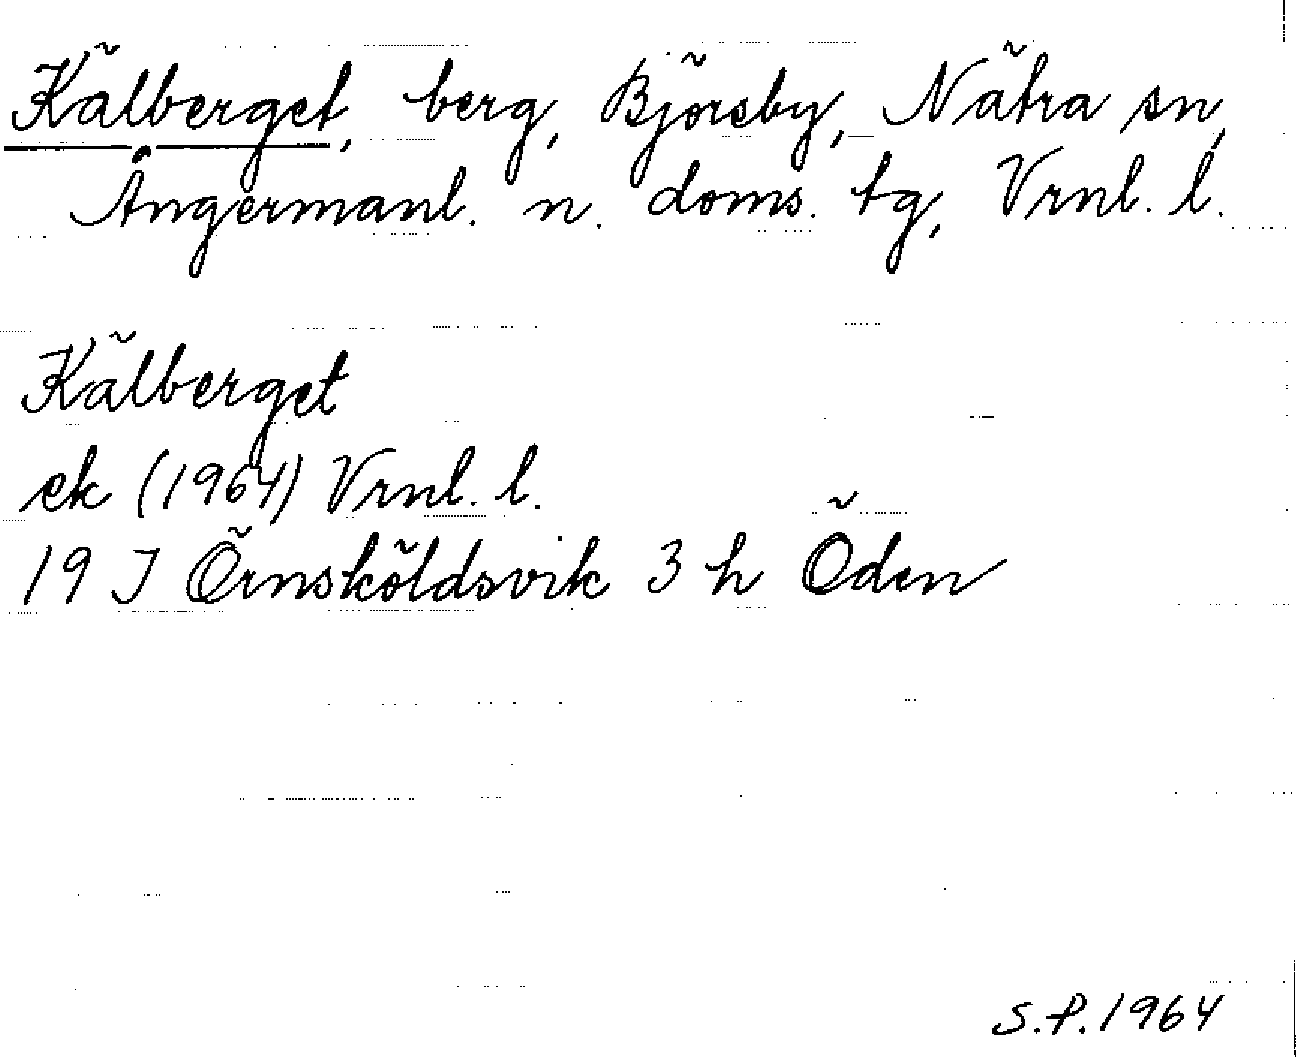 Kälberget, berg, Björsby, Nätra sn,
Ångermanl. n. doms. tg, Vrnl. l.
Kälberget
ek (1964) Vrnl. l.
19 J Örnsköldsvik 3 h Öden
S.P. 1964